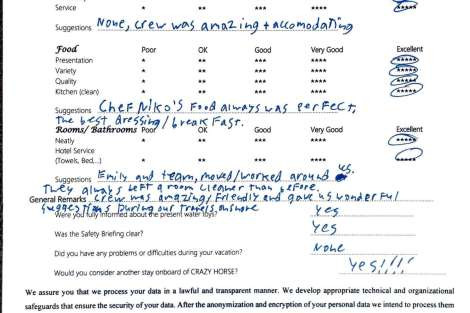 Service * ** *** **** *****
Suggestions None, crew was amazing + accomodating
Food Poor OK Good Very Good Excellent
Presentation * ** *** **** *****
Variety * ** *** **** *****
Quality * ** *** **** *****
Kitchen (clean) * ** *** **** *****
Suggestions Chef Niko's Food always was perfect,
The best dressing/breakfast.
Rooms/ Bathrooms Poor OK Good Very Good Excellent
Neatly * ** *** **** *****
Hotel Service
(Towels, Bed,...) * ** *** **** *****
Suggestions Emily and team, moved/worked around us.
They always left a room cleaner than before.
General Remarks Crew was amazing/Friendly and gave us wonderful
suggestions During our travels onshore
Were you fully informed about the present water toys? Yes
Was the Safety Briefing clear? Yes
Did you have any problems or difficulties during your vacation? None
Would you consider another stay onboard of CRAZY HORSE? Yes!!!!
We assure you that we process your data in a lawful and transparent manner. We develop appropriate technical and organizational
safeguards that ensure the security of your data. After the anonymization and encryption of your personal data we intend to process them